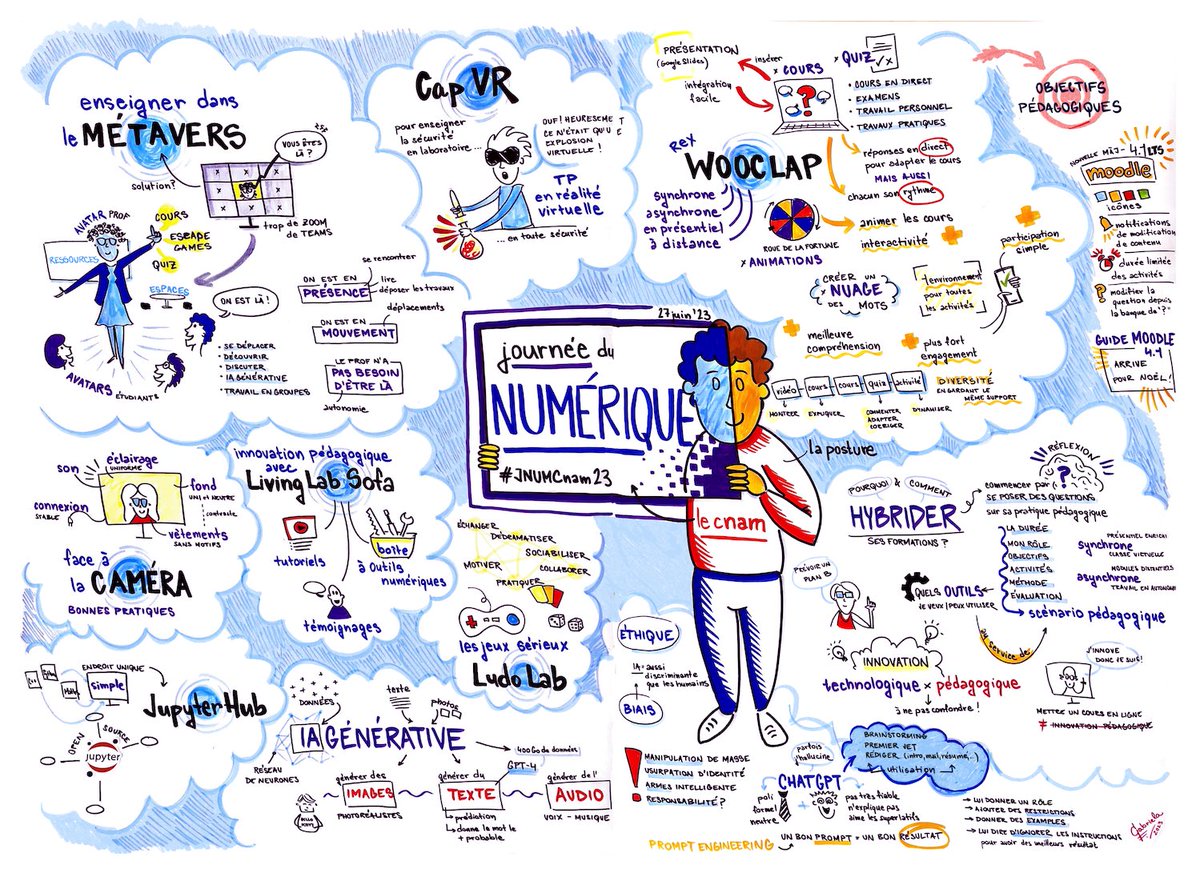 enseigner dans
le MÉTAVERS
solution?
VOUS ÊTES
LÀ ?
trop de ZOOM
de TEAMS
AVATAR PROF
COURS
ESCAPE
GAMES
QUIZ
RESSOURCES
ESPACES
ON EST LÀ !
AVATARS
ÉTUDIANTS
• SE DÉPLACER
• DÉCOUVRIR
• DISCUTER
• IA GÉNÉRATIVE
• TRAVAIL EN GROUPES
se rencontrer
ON EST EN
PRÉSENCE
lire
déposer les travaux
déplacements
ON EST EN
MOUVEMENT
LE PROF N'A
PAS BESOIN
D'ÊTRE LÀ
autonomie
Cap VR
pour enseigner
la sécurité
en laboratoire...
OUF! HEURESEMENT
CE N'ÉTAIT QU'UNE
EXPLOSION
VIRTUELLE !
TP
en réalité
virtuelle
... en toute sécurité
PRÉSENTATION
(Google Slides)
insérer
intégration
facile
× COURS
× QUIZ
• COURS EN DIRECT
• EXAMENS
• TRAVAIL PERSONNEL
• TRAVAUX PRATIQUES
REX
WOOCLAP
synchrone
asynchrone
en présentiel
à distance
réponses en direct
pour adapter le cours
MAIS AUSSI
chacun son rythme
ROUE DE LA FORTUNE
× ANIMATIONS
animer les cours
interactivité
participation
simple
CRÉER UN
× NUAGE
DES MOTS
1 environnement
pour toutes
les activités
meilleure
compréhension
plus fort
engagement
vidéo
cours
cours
quiz
activité
MONTRER
EXPLIQUER
COMMENTER
ADAPTER
CORRIGER
DYNAMISER
DIVERSITÉ
EN GARDANT LE
MÊME SUPPORT
OBJECTIFS
PÉDAGOGIQUES
NOUVELLE MÀJ - 4.1 LTS
moodle
icônes
notifications
de modification
de contenu
durée limitée
des activités
modifier la
question depuis
la banque de "?"
GUIDE MOODLE
4.1
ARRIVE
POUR NOËL !
27 juin '23
journée du
NUMÉRIQUE
#JNUMCnam23
le cnam
la posture
son
éclairage
UNIFORME
fond
UNI et NEUTRE
contraste
connexion
STABLE
vêtements
SANS MOTIFS
face à
la CAMÉRA
BONNES PRATIQUES
innovation pédagogique
avec
LivingLab Sofa
tutoriels
boîte
à outils
numériques
témoignages
ÉCHANGER
DÉDRAMATISER
SOCIABILISER
MOTIVER
COLLABORER
PRATIQUER
les jeux sérieux
LudoLab
ENDROIT UNIQUE
simple
JupyterHub
OPEN
SOURCE
jupyter
DONNÉES
texte
photos
IA GÉNÉRATIVE
RÉSEAU
DE NEURONES
400Go de données
GPT-4
générer des
IMAGES
PHOTORÉALISTES
générer du
TEXTE
→ prédiction
→ donne le mot le
+ probable
générer de l'
AUDIO
VOIX - MUSIQUE
ÉTHIQUE
IA = aussi
discriminante
que les humains
BIAIS
MANIPULATION DE MASSE
USURPATION D'IDENTITÉ
ARMES INTELLIGENTE
RESPONSABILITÉ ?
parfois
l'hallucine
CHATGPT
poli
formel
neutre
pas très fiable
n'explique pas
aime les superlatifs
BRAINSTORMING
PREMIER JET
RÉDIGER (intro, mail, résumé, ..)
utilisation
PROMPT ENGINEERING
UN BON PROMPT = UN BON RÉSULTAT
→ LUI DONNER UN RÔLE
→ AJOUTER DES RESTRICTIONS
→ DONNER DES EXAMPLES
→ LUI DIRE D'IGNORER LES INSTRUCTIONS
pour avoir des meilleurs résultat
POURQUOI & COMMENT
HYBRIDER
SES FORMATIONS ?
RÉFLEXION
?
commencer par
SE POSER DES QUESTIONS
sur sa pratique pédagogique
LA DURÉE
MON RÔLE
OBJECTIFS
ACTIVITÉS
MÉTHODE
ÉVALUATION
PRÉSENTIEL ENRICHI
synchrone
CLASSE VIRTUELLE
MODULES DISTENTIELS
asynchrone
TRAVAIL EN AUTONOMIE
scénario pédagogique
PRÉVOIR UN
PLAN B
QUELS OUTILS
JE VEUX / PEUX UTILISER
au service de
INNOVATION
technologique × pédagogique
à ne pas confondre !
J'INNOVE
DONC JE SUIS!
METTRE UN COURS EN LIGNE
≠ INNOVATION PÉDAGOGIQUE
Gabriela
2023